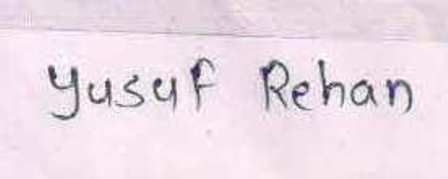 Yusuf Rehan